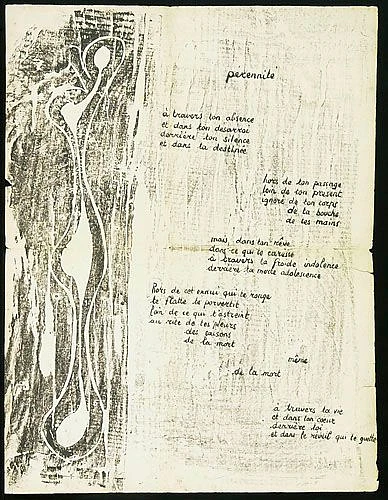 perennité
à travers ton absence
et dans ton desarroi
derrière ton silence
et dans ta destinée
hors de ton passage
loin de ton present
ignoré de ton corps
de ta bouche
de tes mains
mais dans ton rêve
dans ce qui te caresse
à travers ta froide indolence
derrière ta morte adolescence
Hors de cet ennui qui te ronge
te flatte te pervertit
loin de ce qui t'astreint
au rite de tes pleurs
des saisons
de la mort
même
de la mort
à travers ta vie
et dans ton coeur
derrière toi
et dans le réveil qui te guette